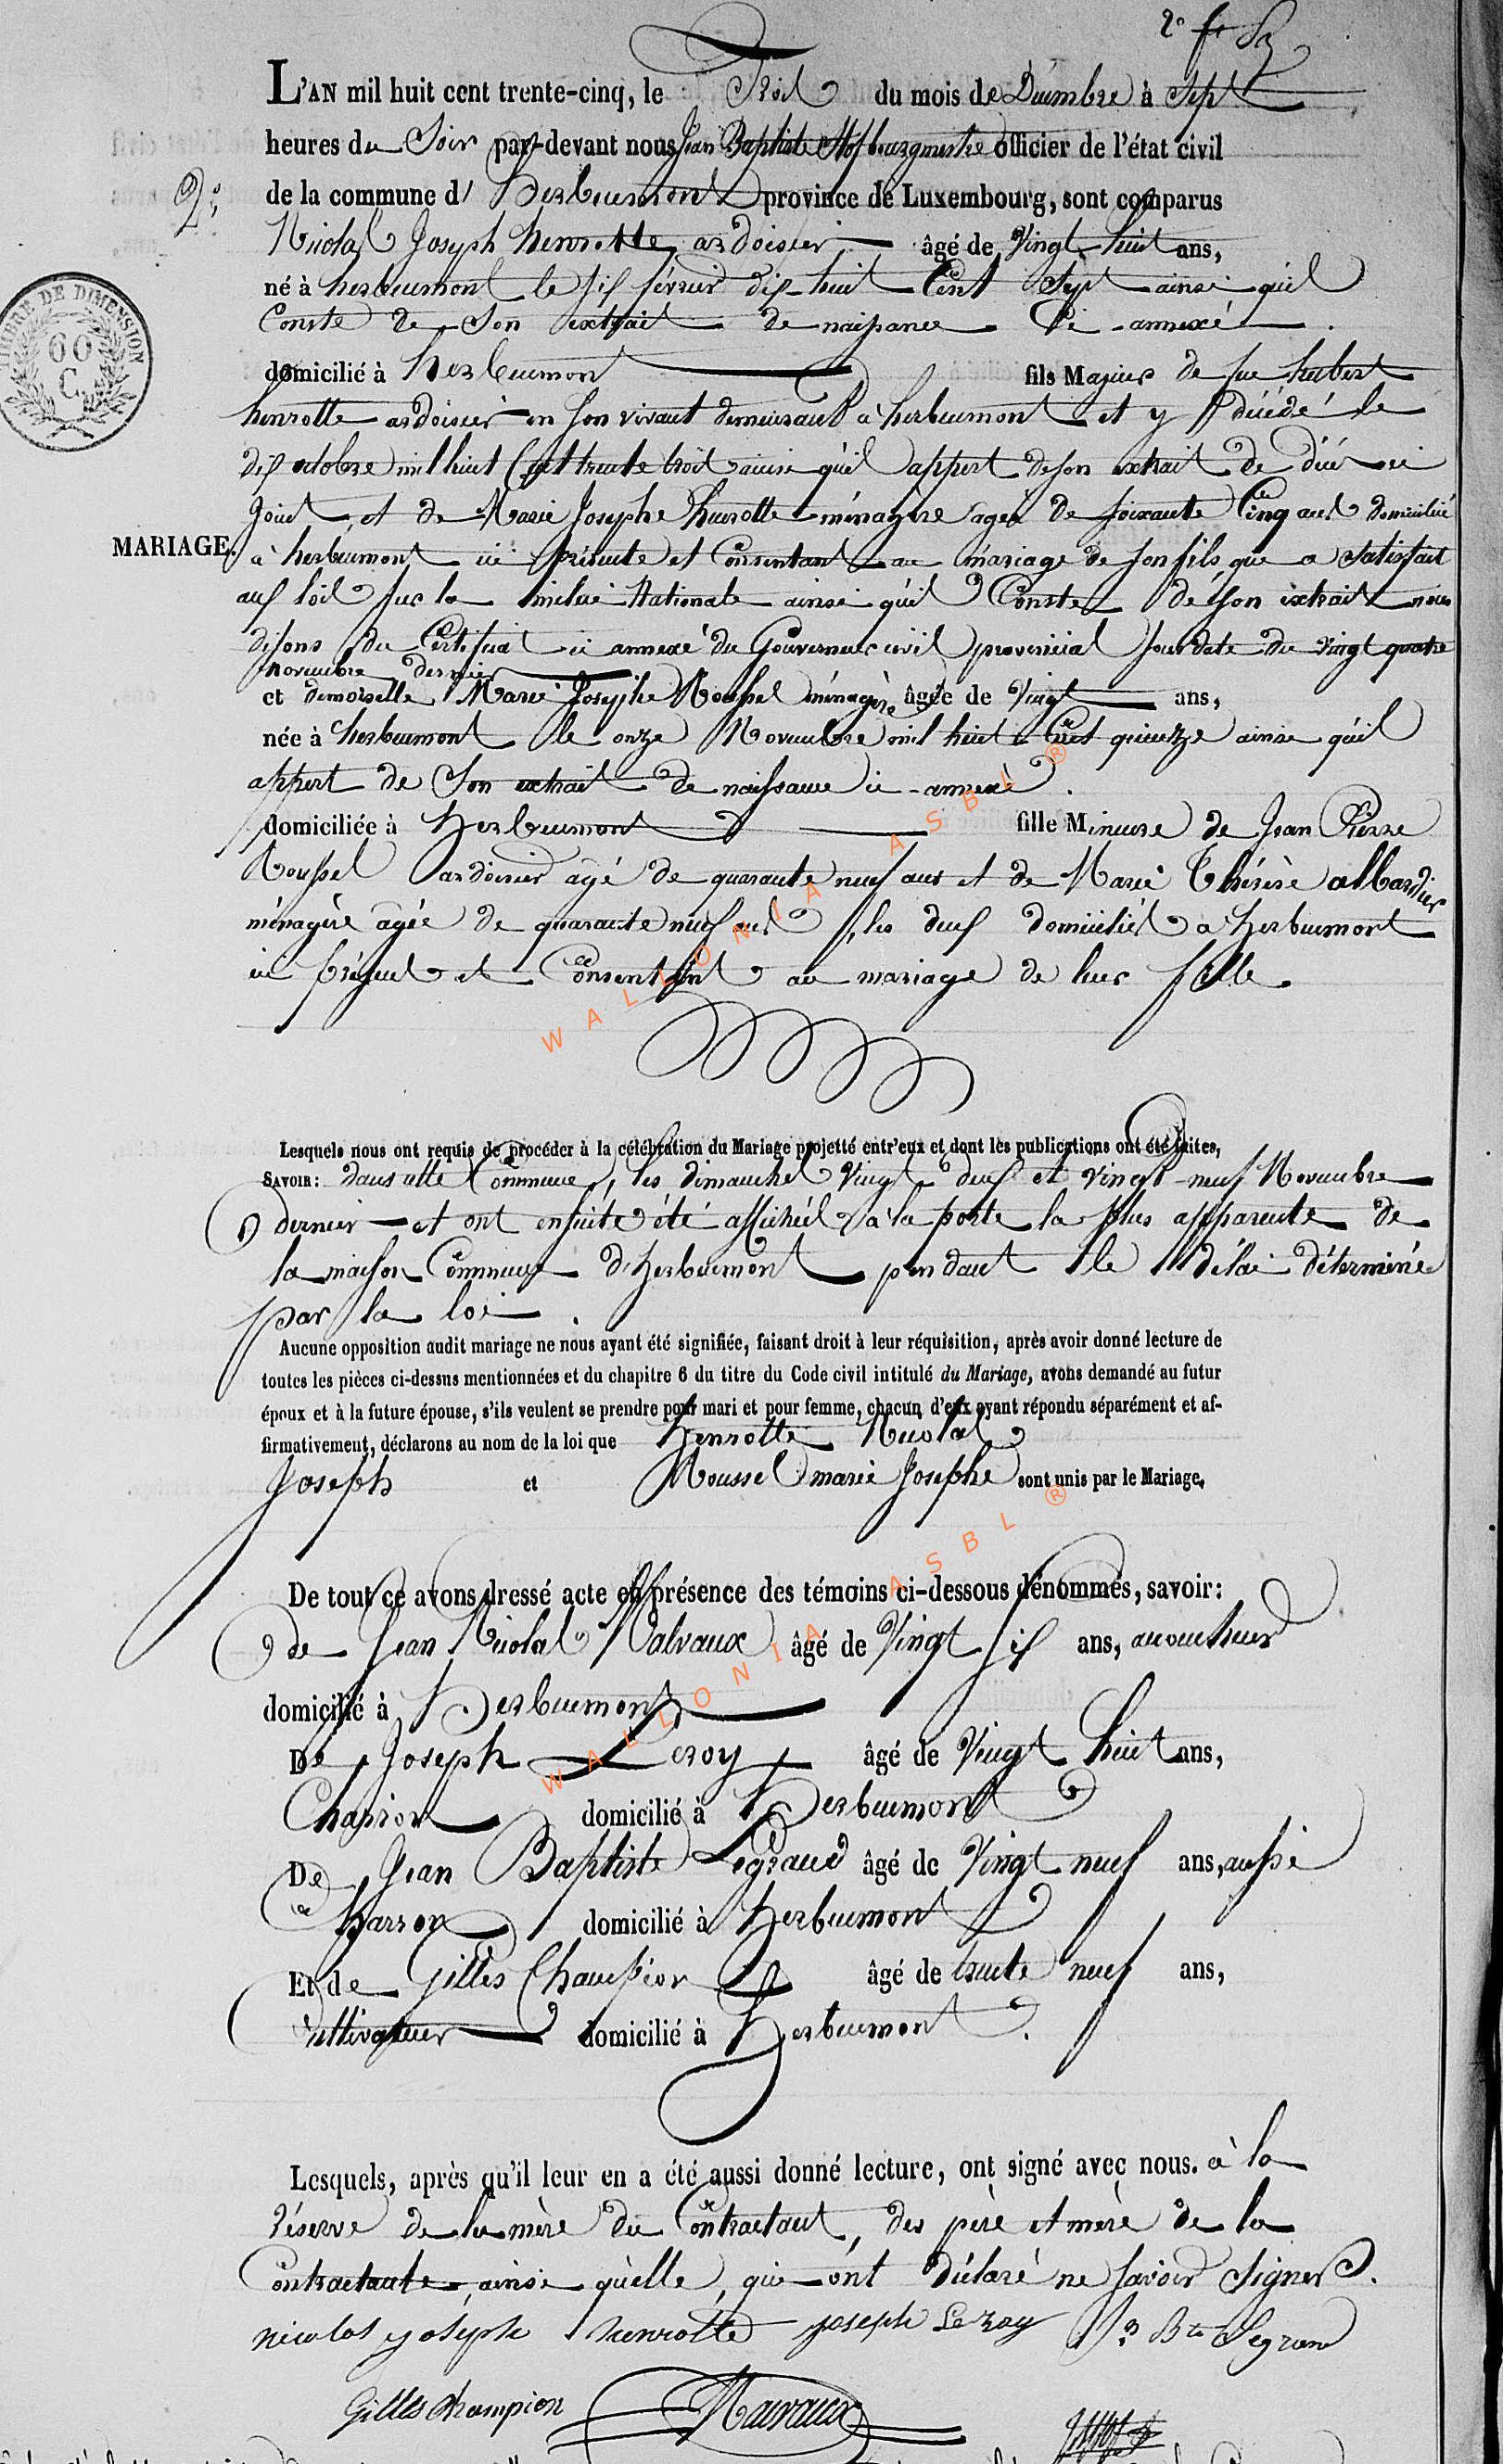 2e ft
L'AN mil huit cent trente-cinq, le Trois du mois de Décembre à Sept
heures du Soir par-devant nous Jean Baptiste Hof bourgmestre officier de l'état civil
de la commune d' Herbeumont province de Luxembourg, sont comparus
2e
Nicolas Joseph henrotte ardoisier âgé de Vingt huit ans,
né à herbeumont le six février dix-huit Cent Sept ainsi qu'il
Conste de Son extrait de naissance Ci-annexé.
domicilié à herbeumont fils Majeur de feu hubert
henrotte ardoisier en son vivant demeurant à herbeumont et y décédé le
dix octobre mil huit Cent trente trois ainsi qu'il appert de son extrait de décès ci
joint, et de Marie Josephe henrotte ménagère agée de soixante Cinq ans domiciliée
MARIAGE.
à herbeumont ici présente et Consentant au mariage de son fils, que a Satisfait
aux lois sur la milice Nationale ainsi qu'il Conste de son extrait nous
disons du Certificat ci annexé du Gouverneur civil provincial sous date du vingt quatre
novembre dernier
et demoiselle Marie Josephe Roussel ménagère âgée de Vingt ans,
née à herbeumont le onze Novembre mil huit Cent quinze ainsi qu'il
appert de Son extrait de naissance ci-annexé.
domiciliée à Herbeumont fille Mineure de Jean Pierre
Roussel ardoisier agé de quarante neuf ans et de Marie Thérèse allardier
ménagère âgée de quarante neuf ans, les deux domiciliés à herbeumont
ici présent et Consentant au mariage de leur fille.
WALLONIA ASBL ®
Lesquels nous ont requis de procéder à la célébration du Mariage projetté entr'eux et dont les publications ont été faites,
SAVOIR: dans cette Commune, les dimanches Vingt-deux et vingt-neuf Novembre
dernier et ont ensuite été affichées à la porte la plus apparente de
la maison Commune d'herbeumont pendant le délai déterminé
par la loi.
Aucune opposition audit mariage ne nous ayant été signifiée, faisant droit à leur réquisition, après avoir donné lecture de
toutes les pièces ci-dessus mentionnées et du chapitre 6 du titre du Code civil intitulé du Mariage, avons demandé au futur
époux et à la future épouse, s'ils veulent se prendre pour mari et pour femme, chacun d'eux ayant répondu séparément et af-
firmativement, déclarons au nom de la loi que Henrotte Nicolas
Joseph et Roussel marie Josephe sont unis par le Mariage.
De tout ce avons dressé acte en présence des témoins ci-dessous dénommés, savoir:
de Jean Nicolas Malvaux âgé de Vingt six ans, accoucheur
domicilié à Herbeumont
De Joseph Leroy âgé de Vingt huit ans,
Charron domicilié à Herbeumont
De Jean Baptiste Legrand âgé de Vingt neuf ans, aussi
Charron domicilié à Herbeumont
Et de Gilles Champion âgé de trente neuf ans,
Cultivateur domicilié à Herbeumont.
WALLONIA ASBL ®
Lesquels, après qu'il leur en a été aussi donné lecture, ont signé avec nous. à la
réserve de la mère du Contractant, des père et mère de la
Contractante, ainsi qu'elle, qui ont déclaré ne savoir Signer.
nicolas joseph henrotte joseph Leroy J. Bte Legrand
Gilles Champion Malvaux
TIMBRE DE DIMENSION
60
C.